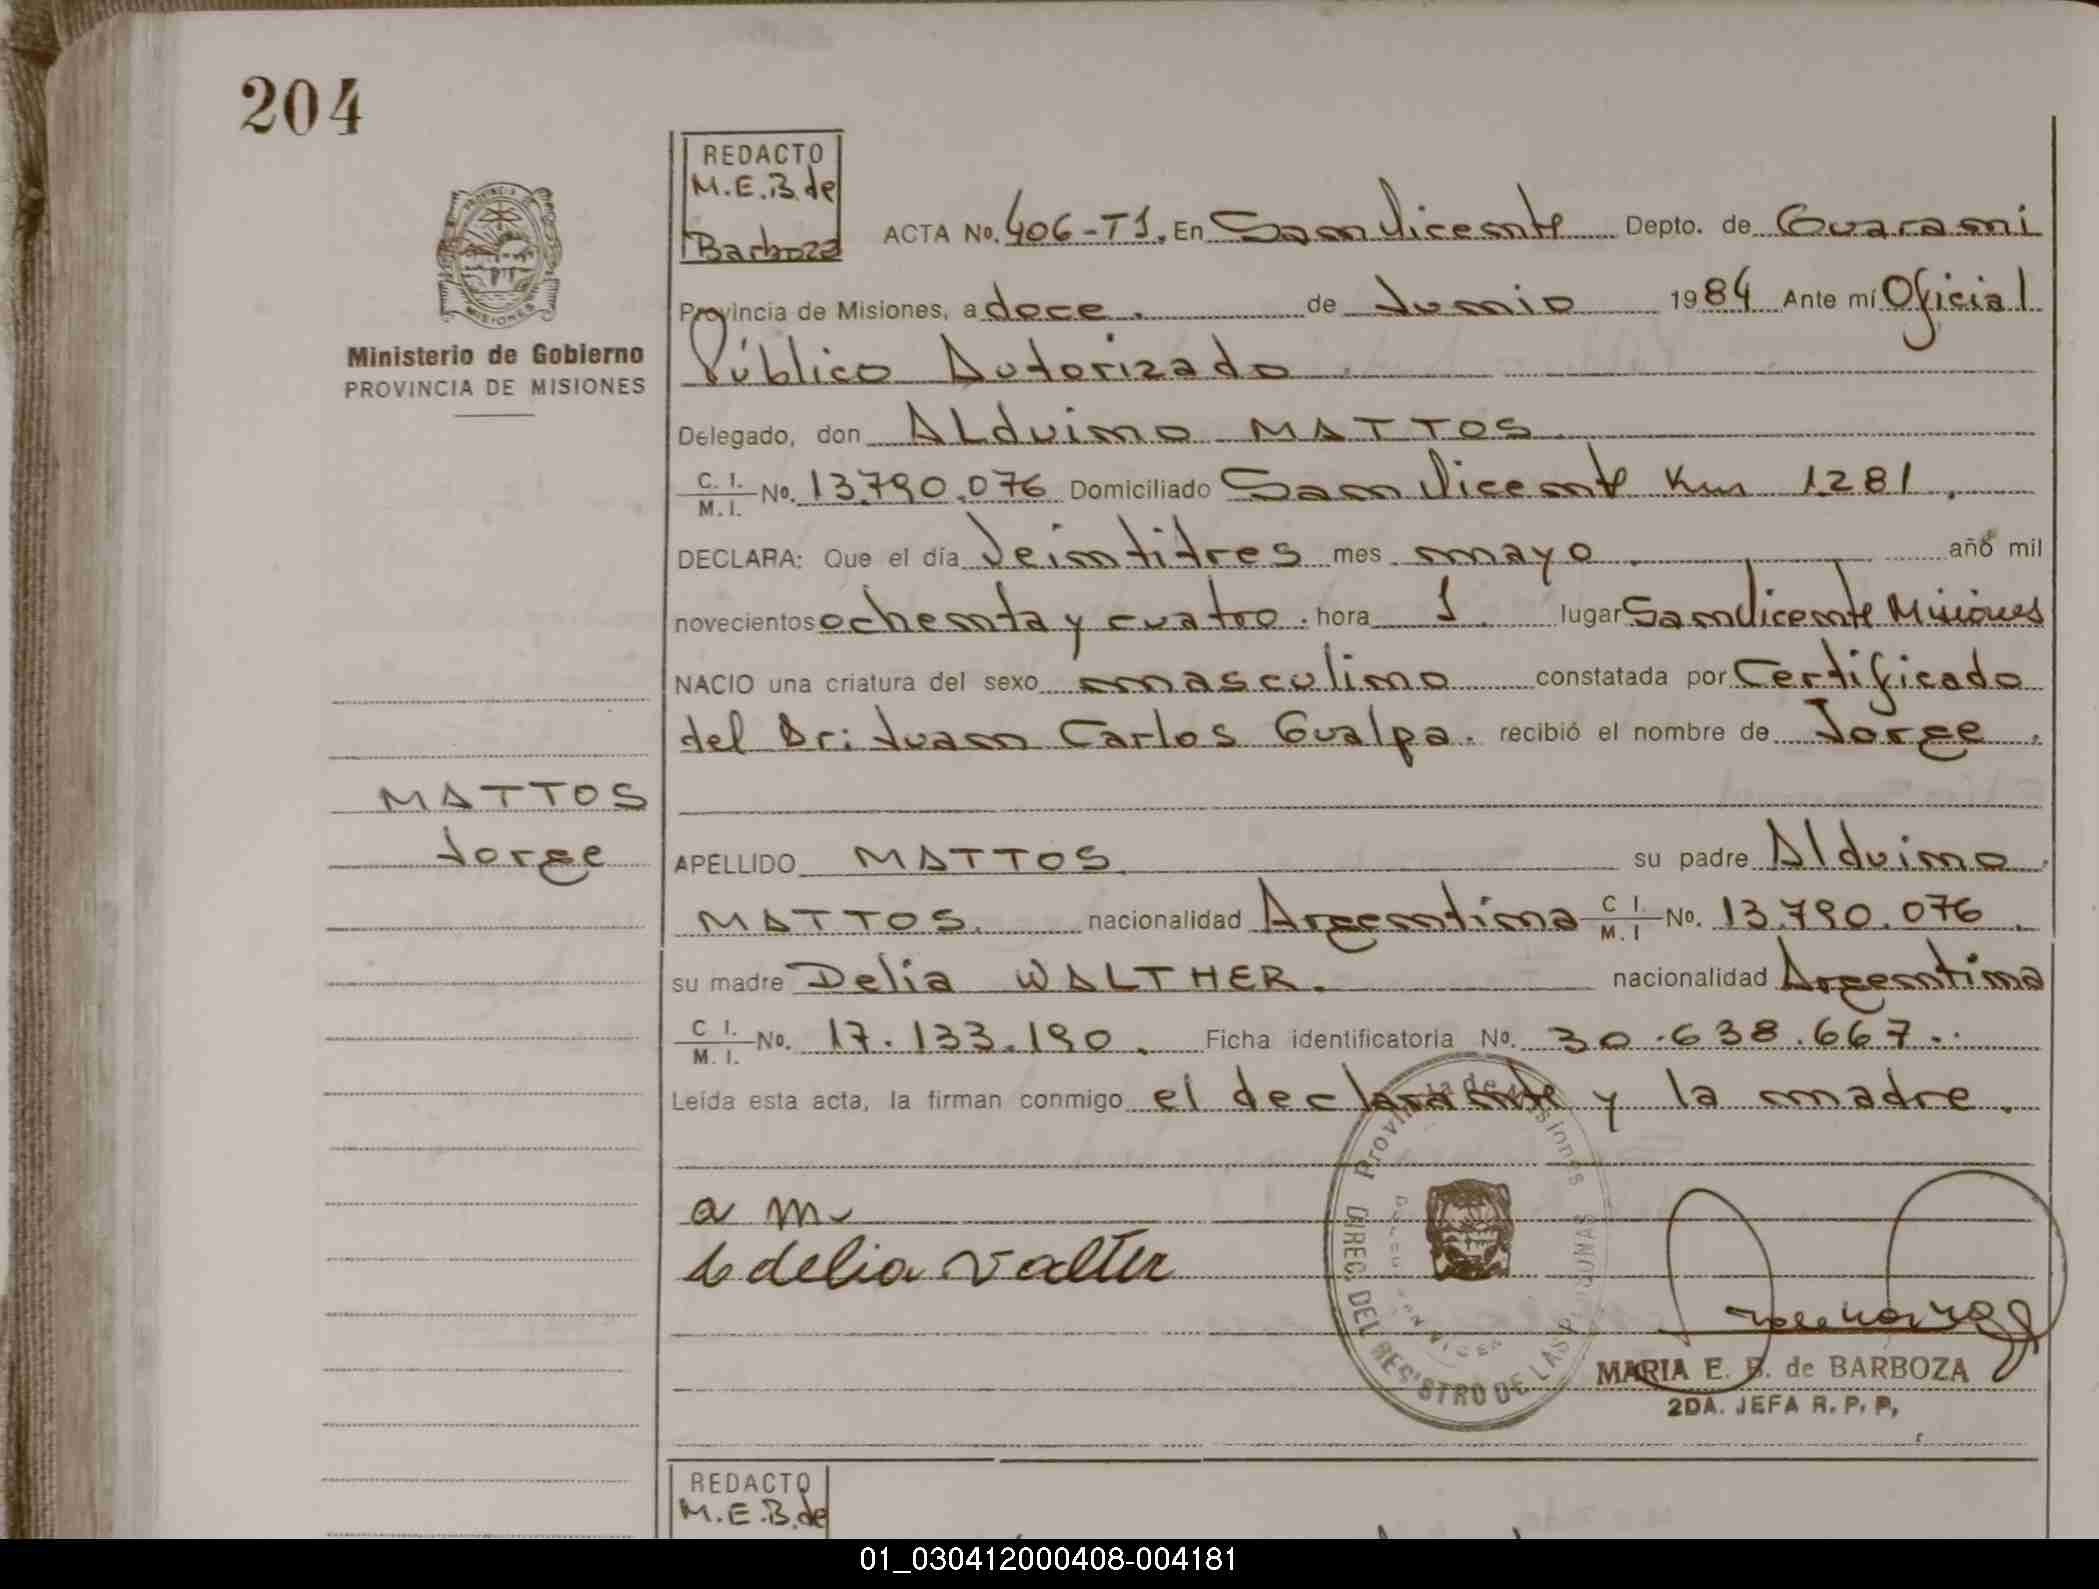 204
REDACTO
M.E.B. de
Barboza
ACTA No. 406-T1. En San Vicente Depto. de Guarani
Provincia de Misiones, a doce. de Junio 1984 Ante mí Oficial
Público Autorizado
Ministerio de Gobierno
PROVINCIA DE MISIONES
Delegado, don ALduino MATTOS
C. I. M. I. No. 13.790.076 Domiciliado San Vicente Km 1281.
DECLARA: Que el día Veintitres mes mayo año mil
novecientos ochenta y cuatro. hora 1. lugar San Vicente Misiones
NACIO una criatura del sexo masculino constatada por Certificado
del Dr: Juan Carlos Gualpa. recibió el nombre de Jorge.
MATTOS
Jorge
APELLIDO MATTOS su padre Alduino
MATTOS. nacionalidad Argentina C I. M. I No. 13.790.076.
su madre Delia WALTHER. nacionalidad Argentina
C I. M. I. No. 17.133.190. Ficha identificatoria No. 30.638.667..
Leída esta acta, la firman conmigo el declarante y la madre.
a m
delia valter
Provincia de Misiones
DIREC. DEL REGISTRO DE LAS P
MARIA E. B. de BARBOZA
2DA. JEFA R. P. P,
REDACTO
M.E.B. de
01_030412000408-004181